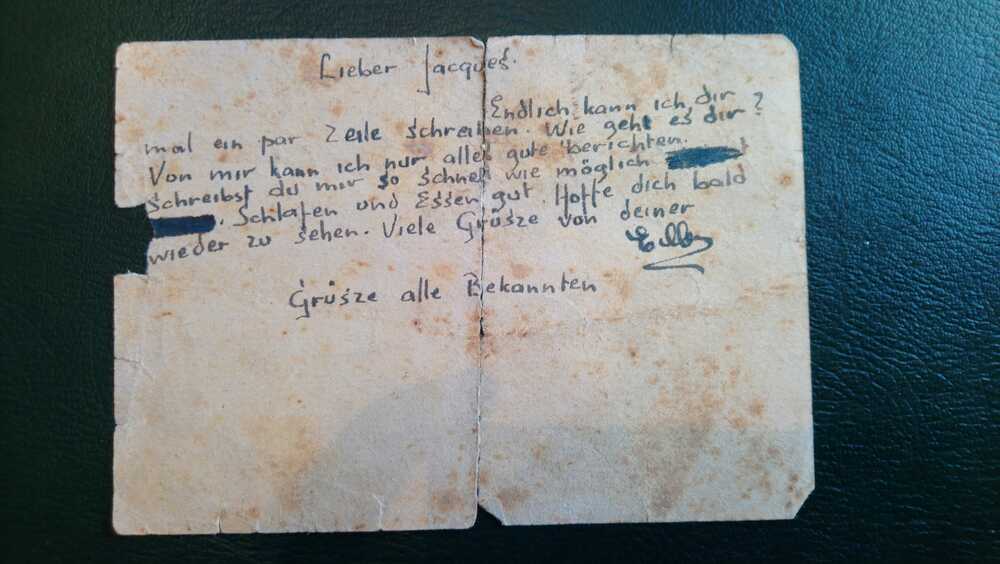 Lieber Jacques.
Endlich kann ich dir
mal ein par Zeile schreiben. Wie geht es dir?
Von mir kann ich nur alles gute berichten.
Schreibst du mir so schnell wie möglich
. Schlafen und Essen gut. Hoffe dich bald
wieder zu sehen. Viele Grüsze von deiner
Grüsze alle Bekannten